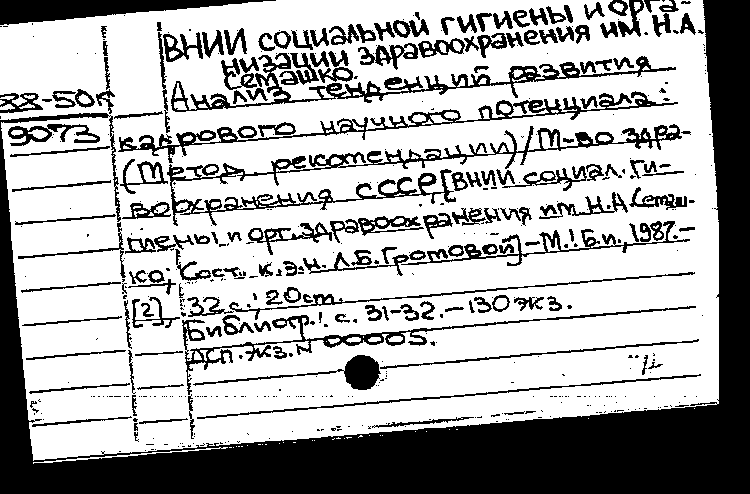 ВНИИ социальной гигиены и орга-
низации здравоохранения им. Н.А.
Семашко.
88-50к
9073
Анализ тенденций развития
кадрового научного потенциала:
(Метод. рекомендации)/М-во здра-
воохранения СССР[ВНИИ социал. ги-
гиены и орг. здравоохранения им. Н.А.Семаш-
ко; Сост. к.э.н. Л.Б.Громовой].-М.:Б.и., 1987.-
[2], 32 с.; 20см.
Библиогр.: с. 31-32. - 130 экз.
ДСП. Экз. N 00005.